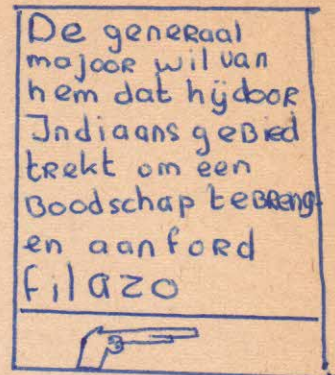 De geneRaal
majooR wil van
hem dat hij dooR
Indiaans geBied
tRekt om een
Boodschap te BReng
en aan foRd
filazo